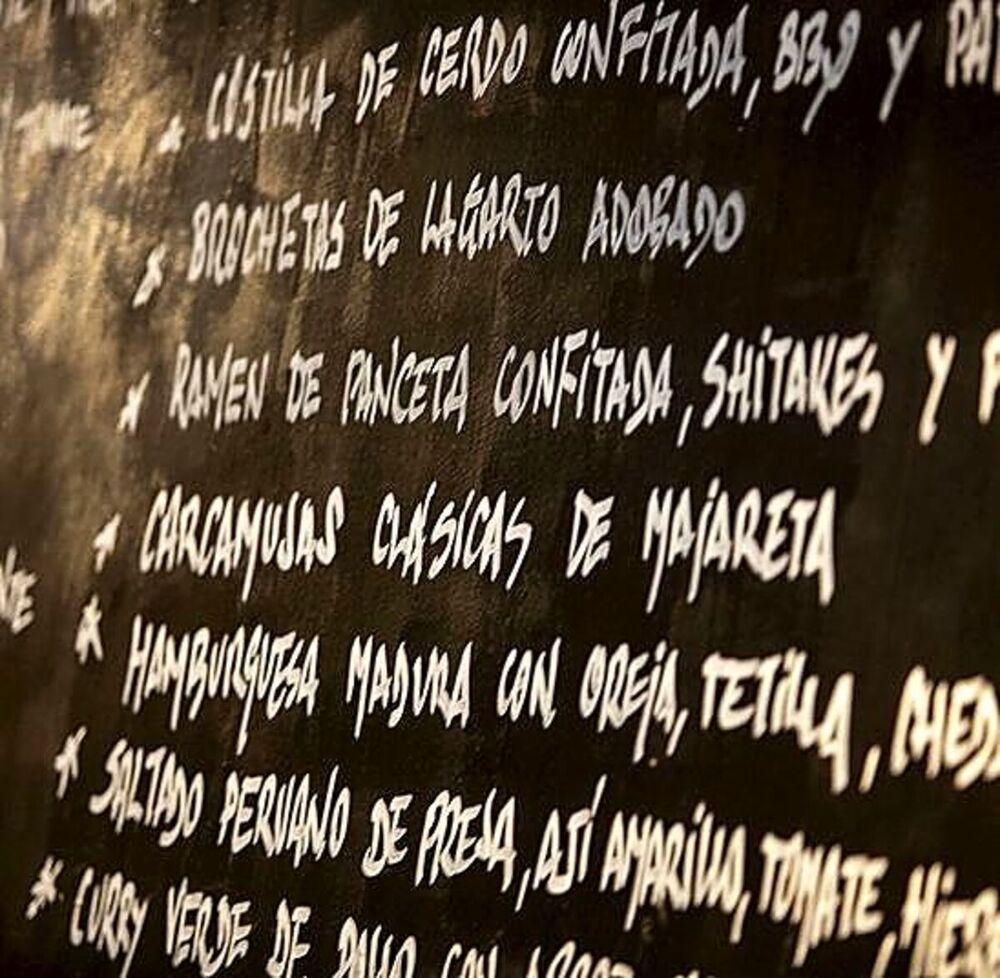 * COSTILLA DE CERDO CONFITADA, BBQ Y
* BROCHETAS DE LAGARTO ADOBADO
* RAMEN DE PANCETA CONFITADA, SHITAKES Y
* CARCAMUJAS CLÁSICAS DE MAJARETA
* HAMBURGUESA MADURA CON OREJA, TETILLA, CHED
* SALTADO PERUANO DE PRESA, AJÍ AMARILLO, TOMATE, HIER
* CURRY VERDE DE POLLO CON ARROZ